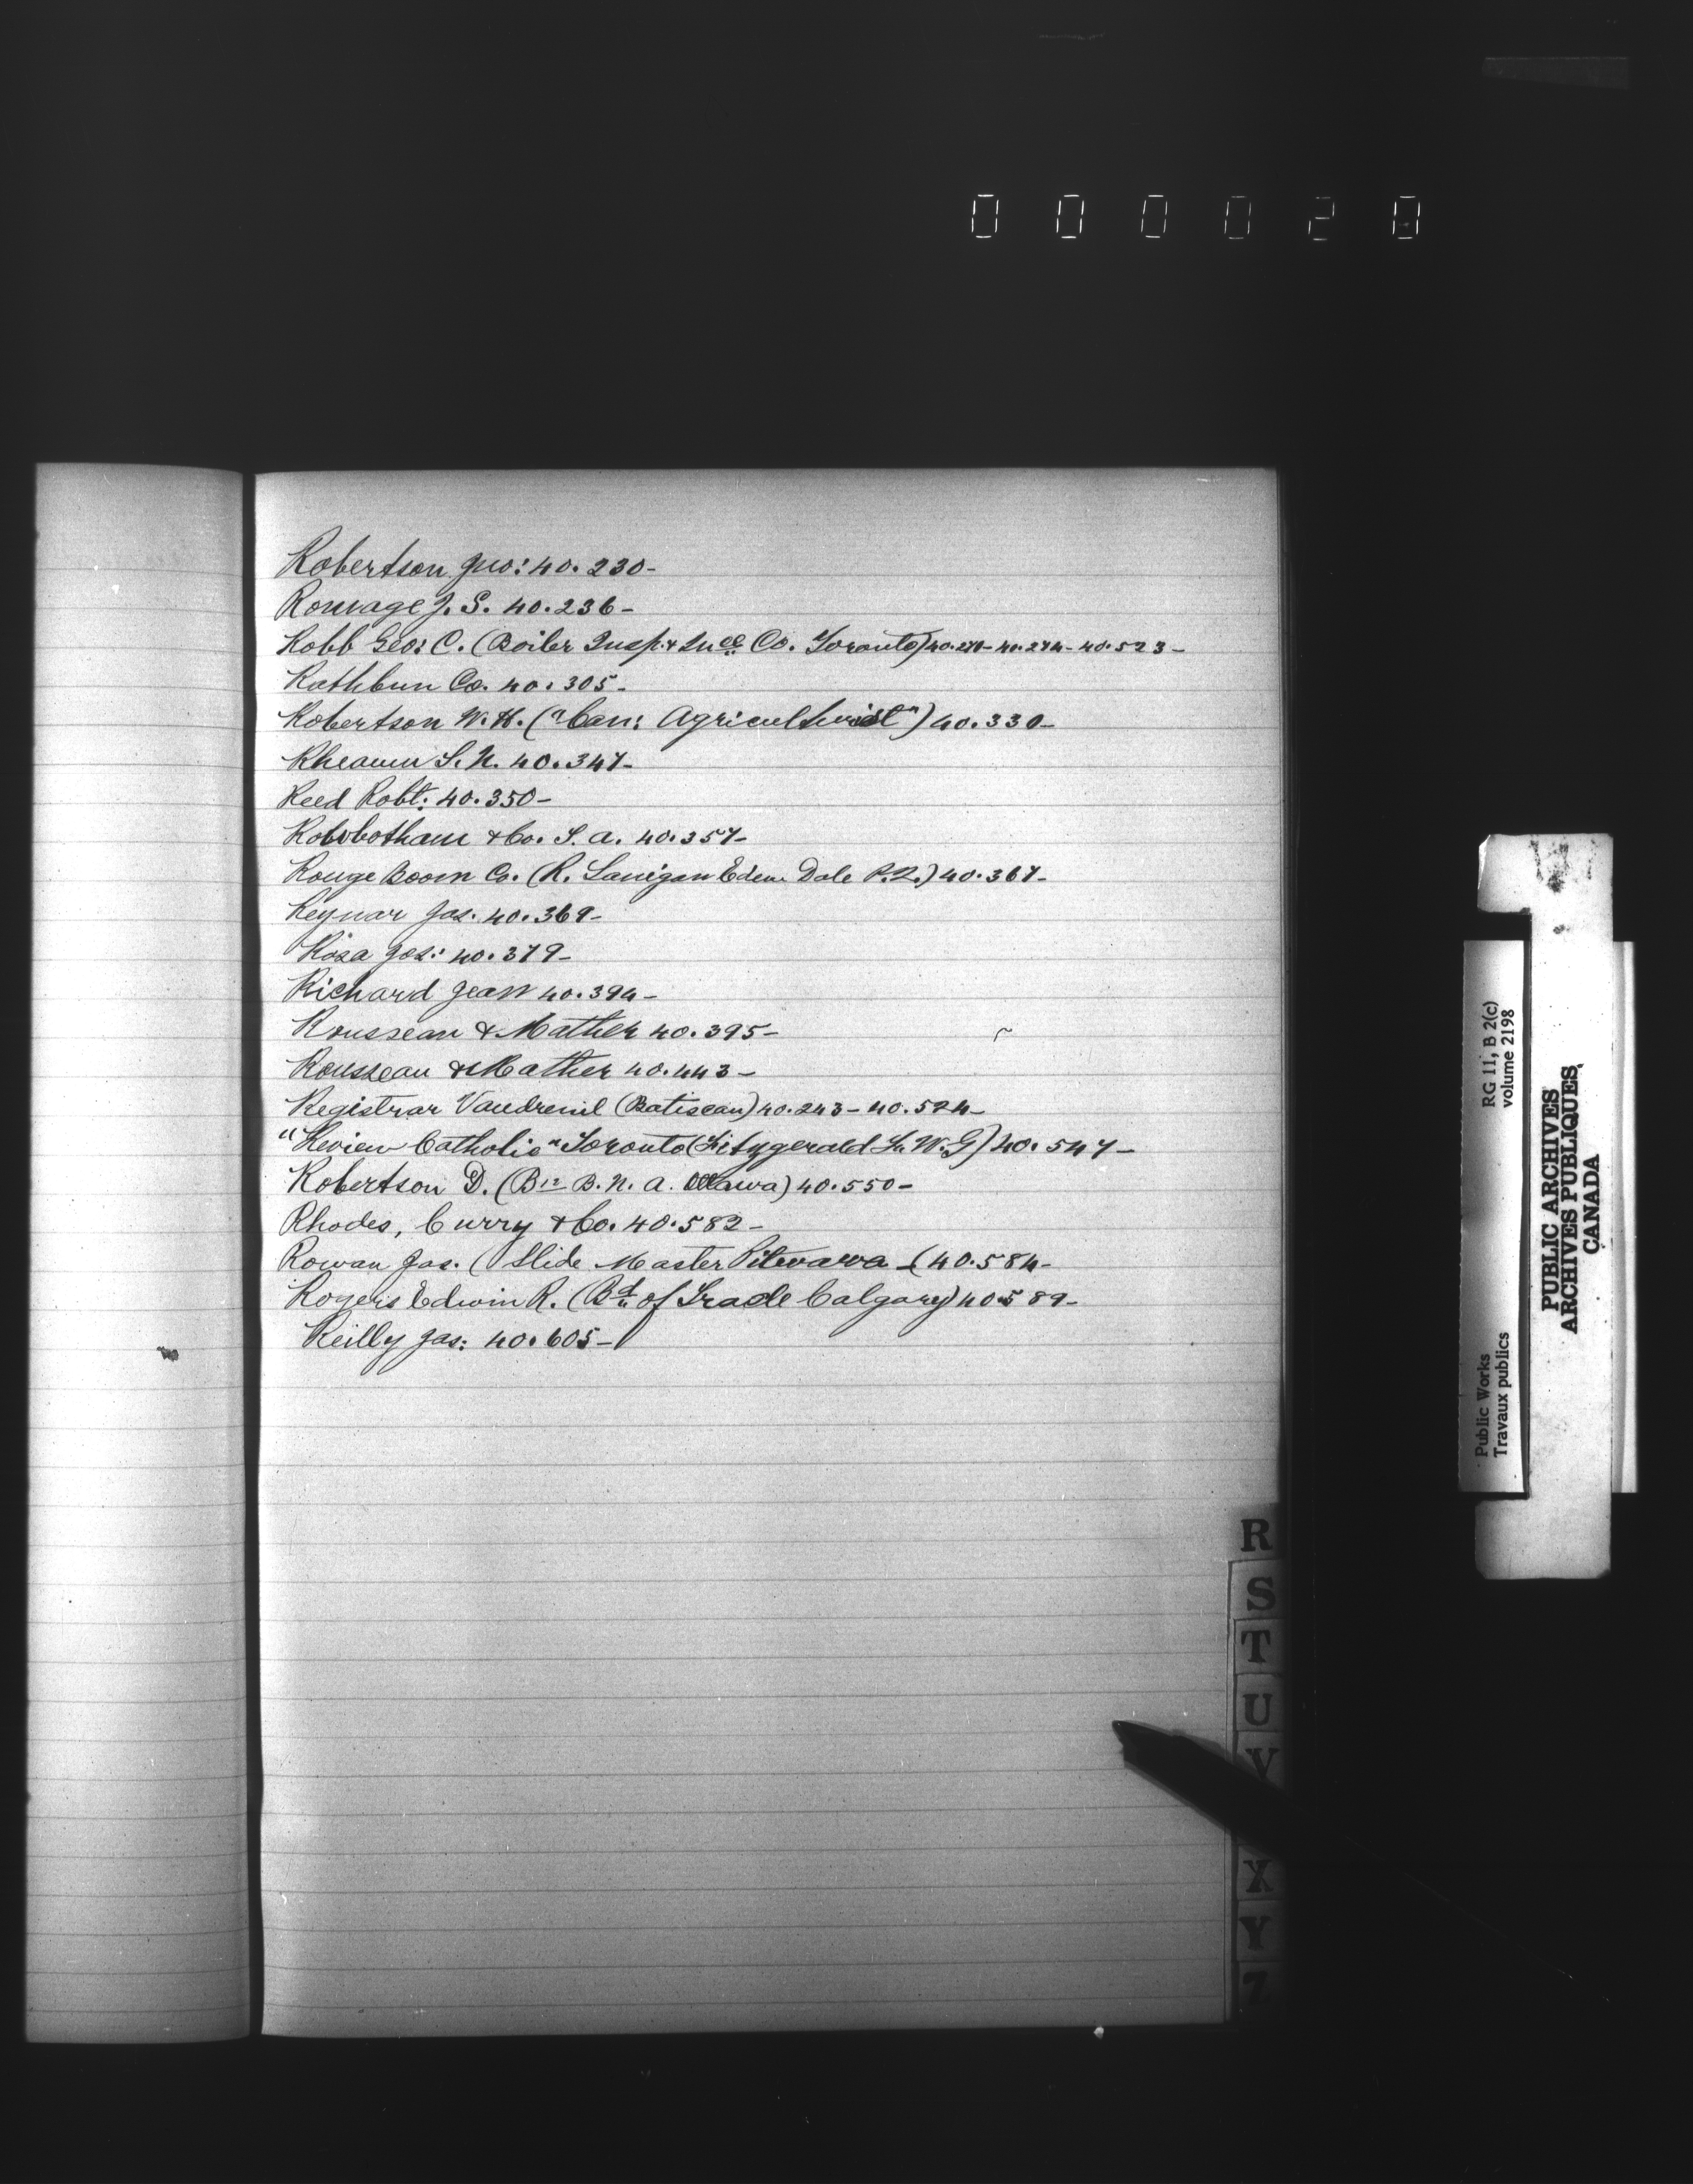 000020
Robertson Geo: 40.230-
Romage J. S. 40.236-
Robb Geo: C. (Boiler Insp. & Ince Co. Toronto) 40.270- 40.274- 40.523-
Rathbun Co. 40.305-
Robertson W. H. ("Can: Agriculturist") 40.330-
Rheaum S. N. 40.347-
Reed Robt: 40.350-
Robbotham & Co. S. A. 40.357-
Rouge Boom Co. (R. Lanigan Eden Dale P.Q.) 40.367-
Reynar Jas. 40.369-
Rosa Jos: 40.379-
Richard Jean 40.394-
Rousseau & Mather 40.395-
Rousseau & Mather 40.443-
Registrar Vaudreuil (Batiscan) 40.243- 40.524-
"Review Catholic" Toronto (Fitzgerald W.G) 40.547-
Robertson D. (B.N.A. Ottawa) 40.550-
Rhodes, Curry & Co. 40.582-
Rowan Jas. (Slide Master Petewawa - (40.584-
Rogers Edwin R. (Bd of Trade Calgary) 40.589-
Reilly Jas: 40.605-
R
S
T
U
V
X
Y
Z
Public Works
Travaux publics
RG 11, B 2(c)
volume 2198
PUBLIC ARCHIVES
ARCHIVES PUBLIQUES
CANADA